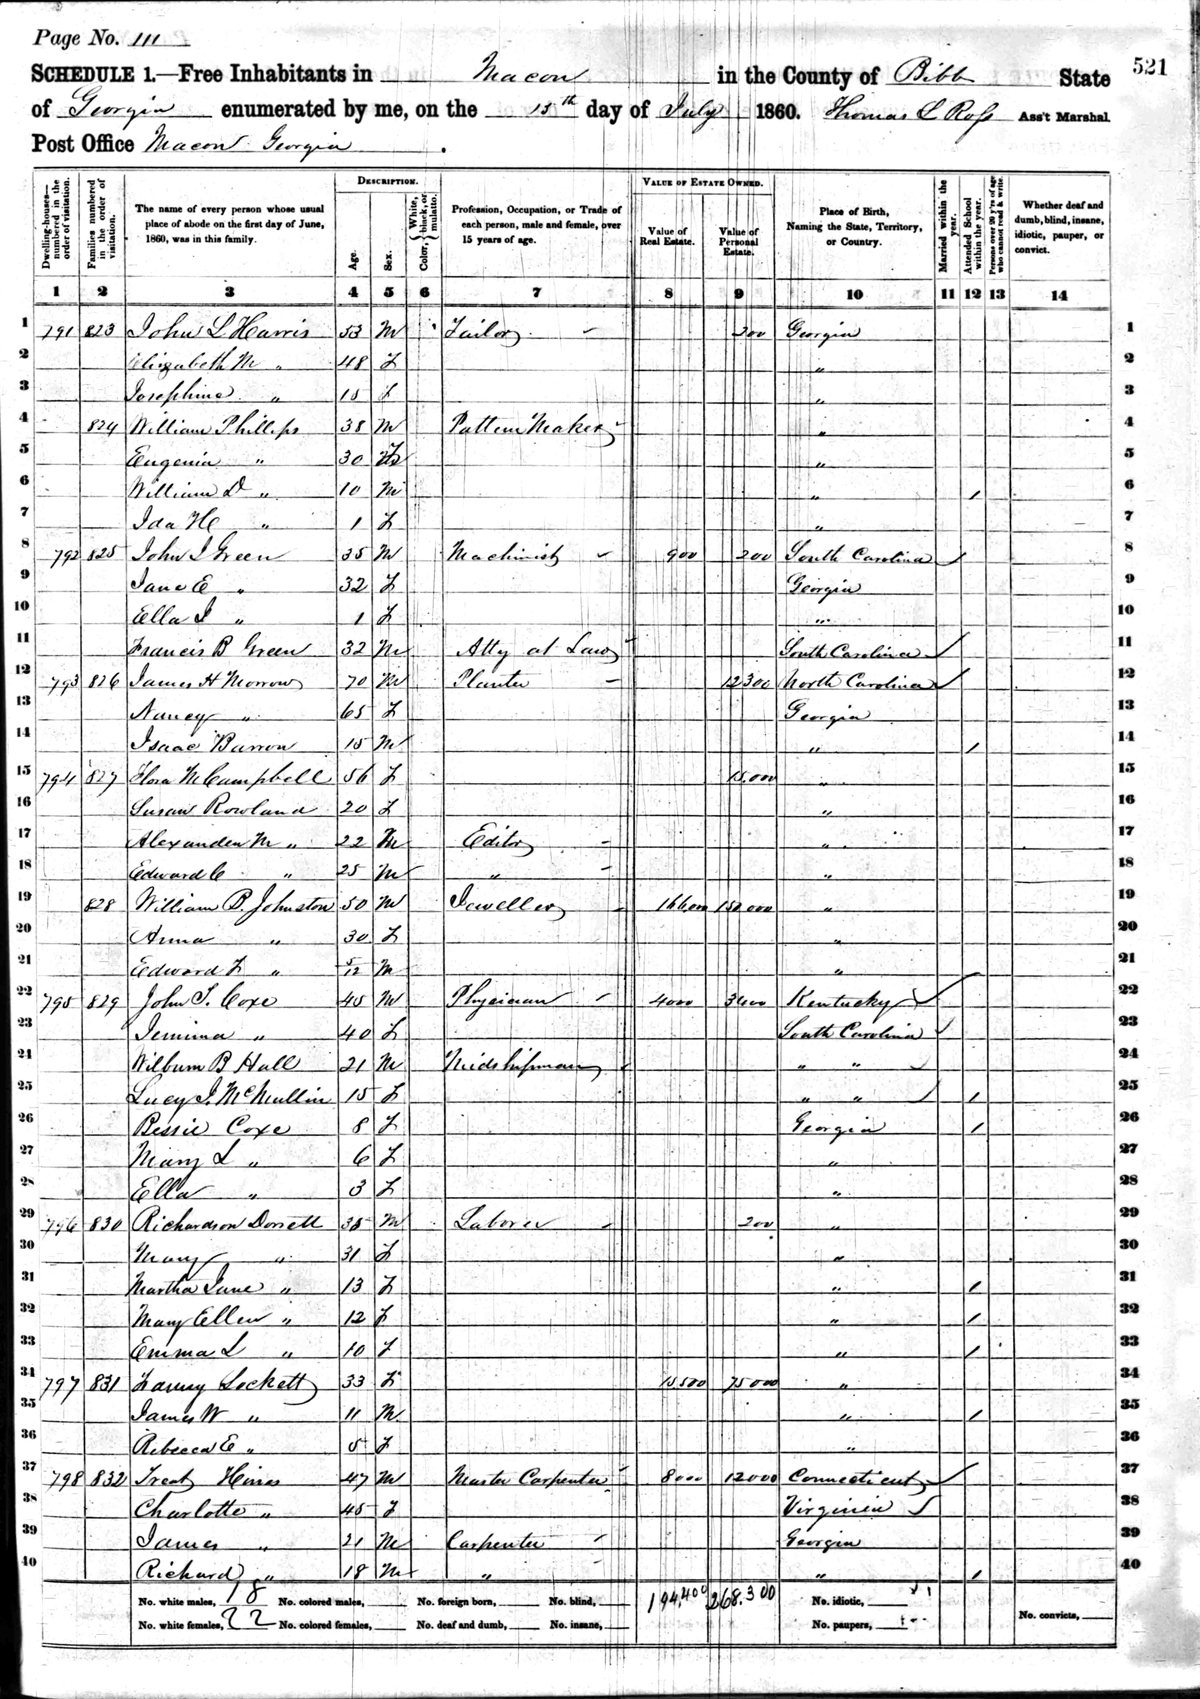 Page No. 111
SCHEDULE 1.—Free Inhabitants in Macon in the County of Bibb State 521
of Georgia enumerated by me, on the 13th day of July 1860. Thomas L Ross Ass't Marshal.
Post Office Macon Georgia.
Dwelling-houses—numbered in the order of visitation.
Families numbered in the order of visitation.
The name of every person whose usual place of abode on the first day of June, 1860, was in this family.
DESCRIPTION.
Age.
Sex.
Color, White, black, or mulatto.
Profession, Occupation, or Trade of each person, male and female, over 15 years of age.
VALUE OF ESTATE OWNED.
Value of Real Estate.
Value of Personal Estate.
Place of Birth, Naming the State, Territory, or Country.
Married within the year.
Attended School within the year.
Persons over 20 y'rs of age who cannot read & write.
Whether deaf and dumb, blind, insane, idiotic, pauper, or convict.
1 2 3 4 5 6 7 8 9 10 11 12 13 14
1 791 823 John L Harris 53 M Tailor 200 Georgia 1
2 Elizabeth M " 48 F " 2
3 Josephine " 15 F " 3
4 824 William Phillips 38 M Pattern Maker " 4
5 Eugenia " 30 F " 5
6 William D " 10 M " / 6
7 Ida H " 1 F " 7
8 792 825 John J Green 35 M Machinist 900 200 South Carolina 8
9 Jane E " 32 F Georgia 9
10 Ella J " 1 F " 10
11 Francis B Green 32 M Atty at Law South Carolina 11
12 793 826 James H Morrow 70 M Planter 12300 North Carolina 12
13 Nancy " 65 F Georgia 13
14 Isaac Barron 15 M " / 14
15 794 827 Flora McCampbell 56 F 15,000 " 15
16 Susan Rowland 20 F " 16
17 Alexander M " 22 M Editor " 17
18 Edward C " 25 M " " 18
19 828 William B. Johnston 50 M Jeweller 166,000 150,000 " 19
20 Anna " 30 F " 20
21 Edward F " 5/12 M " 21
22 795 829 John T. Coxe 45 M Physician 4000 3400 Kentucky 22
23 Jemima " 40 F South Carolina 23
24 Wilburn B Hall 21 M Midshipman " " 24
25 Lucy J. McMullin 15 F " " / 25
26 Bessie Coxe 8 F Georgia / 26
27 Mary L " 6 F " 27
28 Ella " 3 F " 28
29 796 830 Richardson Dorsett 38 M Laborer 200 " 29
30 Mary " 31 F " 30
31 Martha Jane " 13 F " / 31
32 Mary Ellen " 12 F " / 32
33 Emma L " 10 F " / 33
34 797 831 Fanny Lockett 33 F 15,500 75000 " 34
35 James W " 11 M " / 35
36 Rebecca E " 5 F " 36
37 798 832 Treat Hines 47 M Master Carpenter 8000 12000 Connecticut 37
38 Charlotte " 45 F Virginia 38
39 James " 21 M Carpenter Georgia 39
40 Richard " 18 M " " / 40
No. white males, 18 No. colored males, No. foreign born, No. blind, 194,400 268,300 No. idiotic,
No. white females, 22 No. colored females, No. deaf and dumb, No. insane, No. paupers, No. convicts,